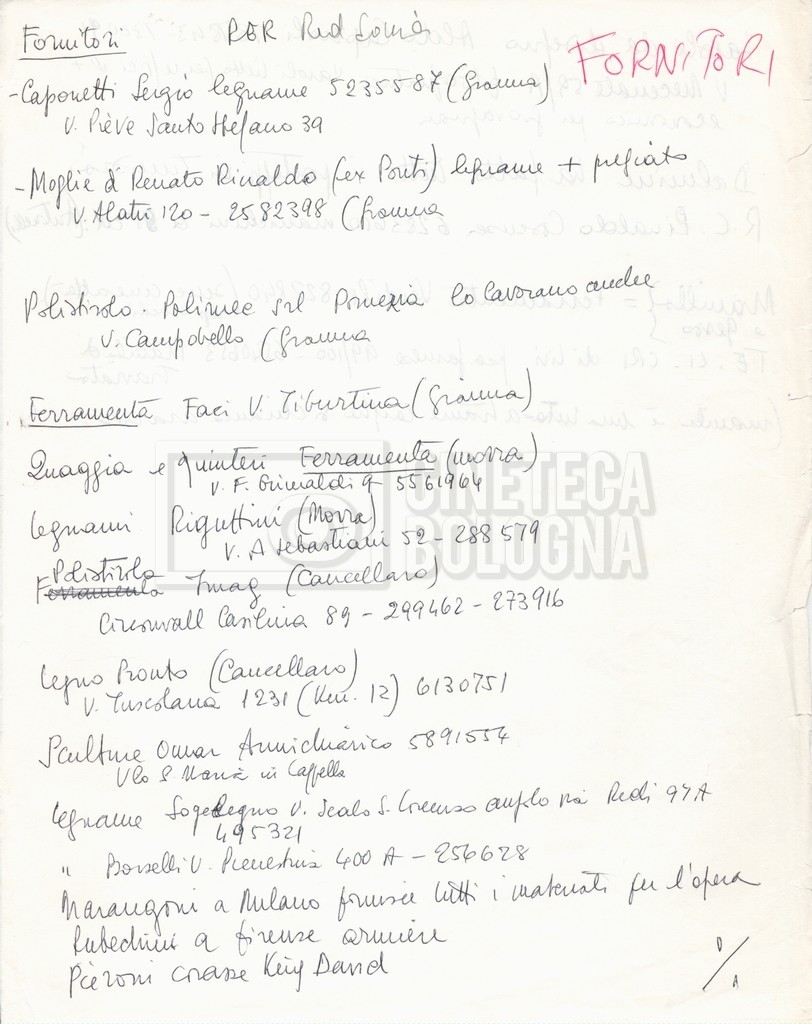 Fornitori PER Red Sonia
FORNITORI
- Caponetti Sergio legname 5235587 (Gianna)
V. Pieve Santo Stefano 39
- Moglie di Renato Rinaldo (ex Ponti) legname + pregiato
V. Alatri 120 - 2582398 (Gianna
Polistirolo. Polimec srl Pomezia lo lavorano anche
V. Campobello (Gianna
Ferramenta Faci V. Tiburtina (Gianna)
Quaggia e quinteri Ferramenta (Morra)
V. F. Grimaldi 9 5561964
legnami Riguttini (Morra)
V. A Sebastiani 52 - 288579
Polistirolo
Ferramenta Imag (Cancellaro)
Circonvall Casilina 89 - 299462 - 273916
Legno Pronto (Cancellaro)
V. Tuscolana 1231 (Km. 12) 6130751
Sculture Omar 5891554
Vlo S. Maria in Cappella
legname Sogelegno V. Scalo S. Lorenzo via Redi 97A
495321
" Borselli V. Prenestina 400 A - 256628
Marangoni a Milano fornisce tutti i materiali per l'opera
Rubechini a firenze armiere
Pieroni corazze King David
CINETECA
BOLOGNA